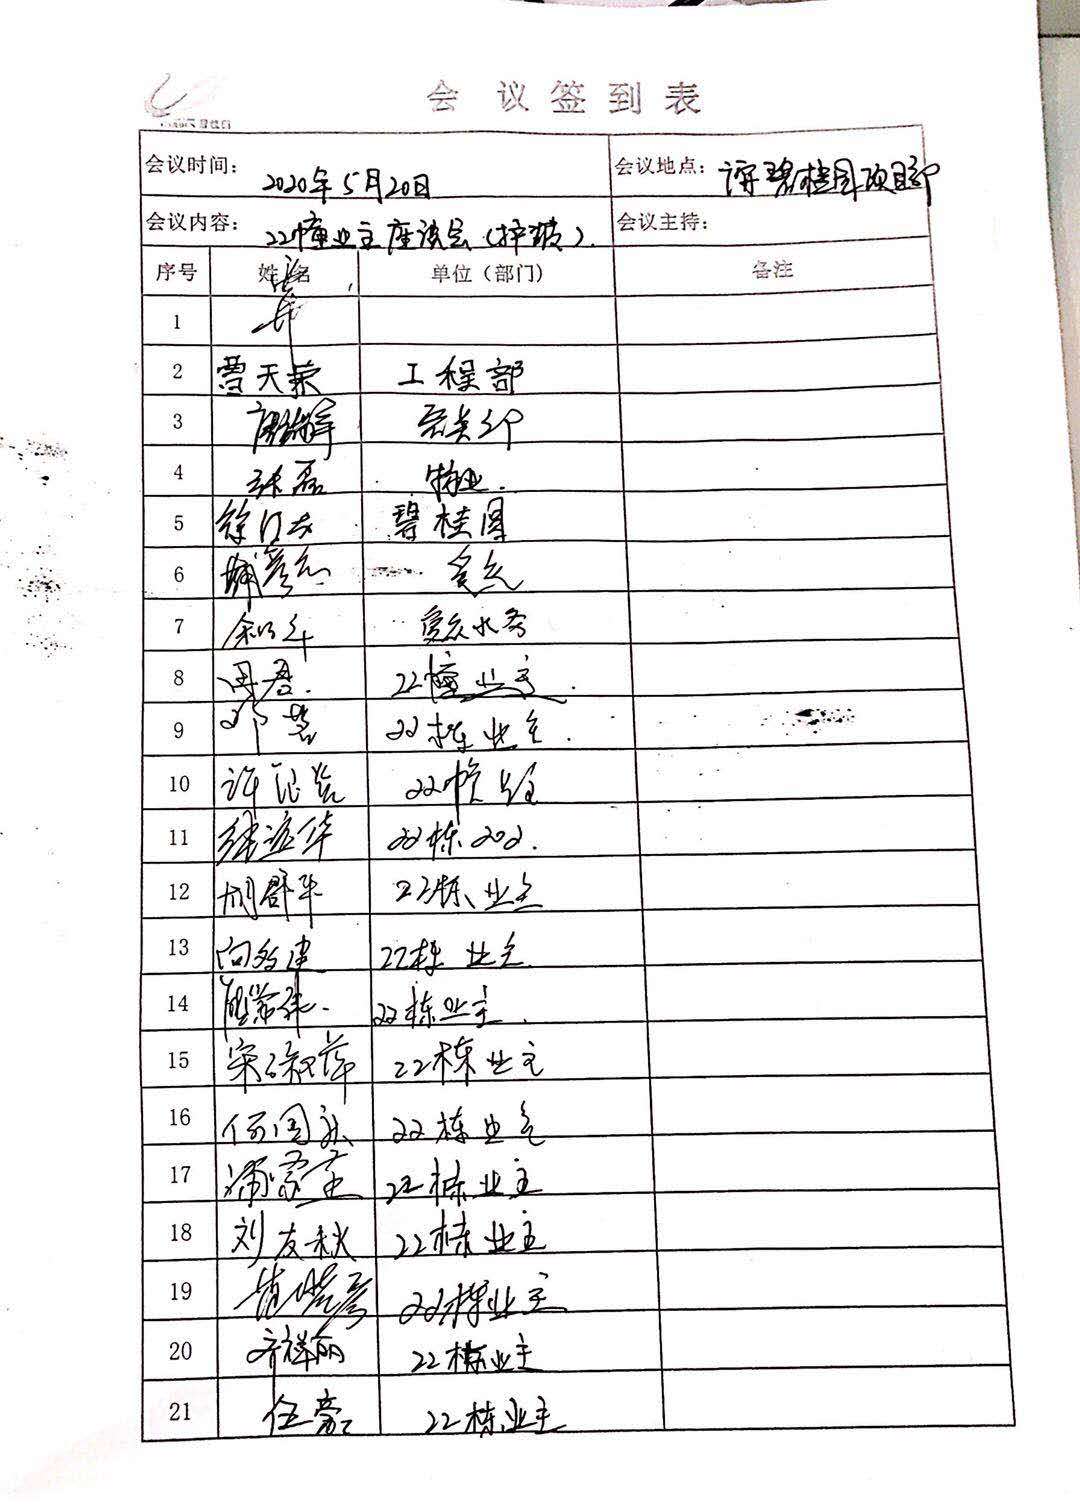 会议签到表
会议时间： 2020年5月20日 会议地点： 碧桂园项目部
会议内容： 22幢业主座谈会（护坡）. 会议主持：
序号 姓名 单位（部门） 备注
1
2 曹天荣 工程部
3
4 张磊 物业.
5 碧桂园
6
7 爱众水务
8 周君. 22幢业主.
9 邓慧 22栋业主.
10 22幢业主
11 22栋202.
12 胡群华 22栋、业主
13 22栋 业主.
14 22栋业主.
15 宋淑萍 22栋业主
16 22栋业主
17 22栋业主
18 刘友秋 22栋业主
19 22栋业主
20 齐祥丽 22栋业主
21 伍豪 22栋业主